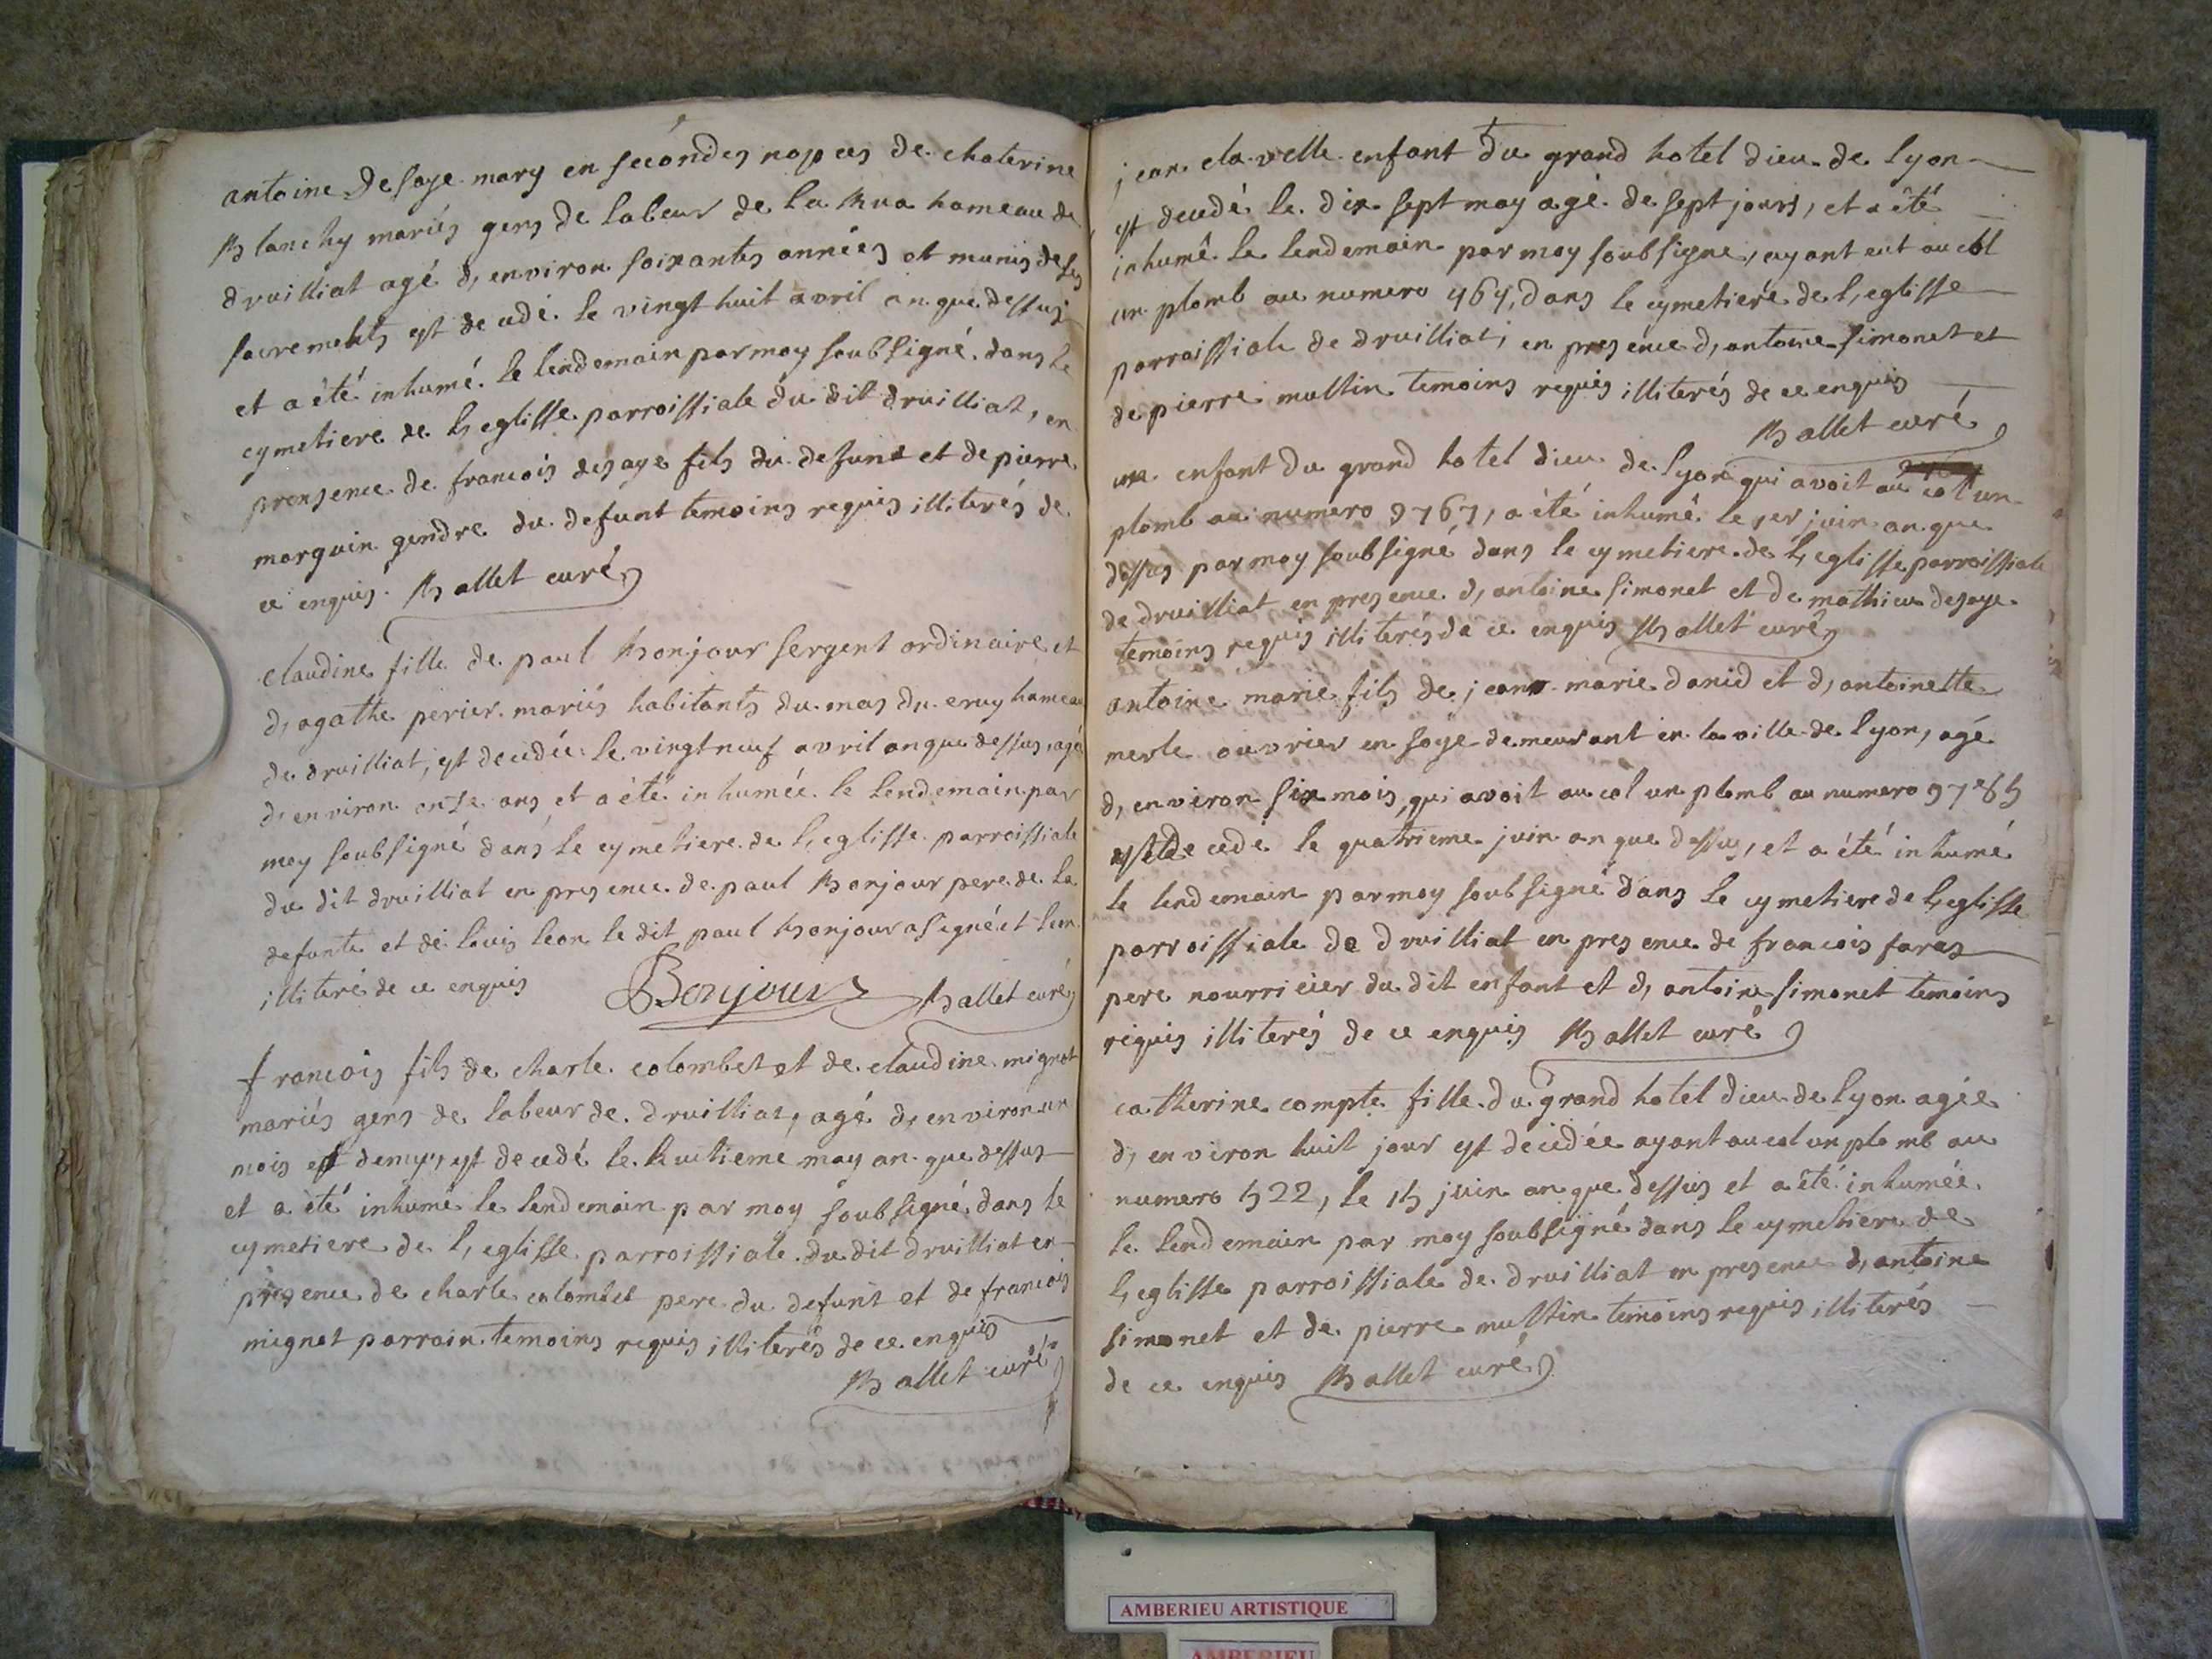 antoine desaye mary en secondes nopces de chaterine
Blanchy mariés gens de labeur de la Rua hameau de
druilliat agé d, environ soixantes années et munis de ses
sacrements est decedé le vingt huit avril an que dessus
et a été inhumé le lendemain par moy soubsigné dans le
cymetiere de l, eglisse parroissiale du dit druilliat, en
presence de francois desaye fils du defunt et de pierre
morguin gendre du defunt temoins requis illiterés de
ce enquis. Ballet curé
claudine fille de paul Bonjour sergent ordinaire et
d, agathe perier mariés habitants du mas du cruy hameau
de druilliat, est decedée le vingt neuf avril an que dessus, agé
d, environ onse ans et a été inhumée le lendemain par
moy soubsigné dans le cymetiere de l, eglisse parroissiale
du dit druilliat en presence de paul Bonjour pere de la
defunte et de louis leon le dit paul Bonjour a signé et leon
illiteré de ce enquis Bonjour Ballet curé
francois fils de charle colombet et de claudine mignot
mariés gens de labeur de druilliat, agé d, environ un
mois et demy, est decedé le huitieme may an que dessus
et a été inhumé le lendemain par moy soubsigné dans le
cymetiere de l, eglisse parroissiale du dit druilliat en
presence de charle colombet pere du defunt et de francois
mignot parrain temoins requis illiterés de ce enquis
Ballet curé
jean clavelle enfant du grand hotel dieu de lyon
est decedé le dix sept may agé de sept jours, et a été
inhumé le lendemain par moy soubsigne, ayant eut au col
un plomb au numero 464, dans le cymetiere de l, eglisse
parroissiale de druilliat, en presence d, antoine simonet et
de pierre multin temoins requis illiterés de ce enquis
Ballet curé
un enfant du grand hotel dieu de lyon qui avoit au col un
plomb au numero 9767, a été inhumé le 1er juin an que
dessus par moy soubsigné dans le cymetiere de l, eglisse parroissiale
de druilliat en presence d, antoine simonet et de mathieu desaye
temoins requis illiterés de ce enquis Ballet curé
antoine marie fils de jean marie danid et d, antoinette
merle ouvrier en soye demeurant en la ville de lyon, agé
d, environ six mois, qui avoit au col un plomb au numero
est decedé le quatrieme juin an que dessus, et a été inhumé
le lendemain par moy soubsigné dans le cymetiere de l, eglisse
parroissiale de druilliat en presence de francois faras
pere nourricier du dit enfant et d, antoine simonet temoins
requis illiterés de ce enquis Ballet curé
catherine compte fille du grand hotel dieu de lyon agée
d, environ huit jour est decedée ayant au col un plomb au
numero 522, le 15 juin an que dessus et a été inhumée
le lendemain par moy soubsigné dans le cymetiere de
l, eglisse parroissiale de druilliat en presence d, antoine
simonet et de pierre multin temoins requis illiterés
de ce enquis Ballet curé
AMBERIEU ARTISTIQUE
AMBERIEU